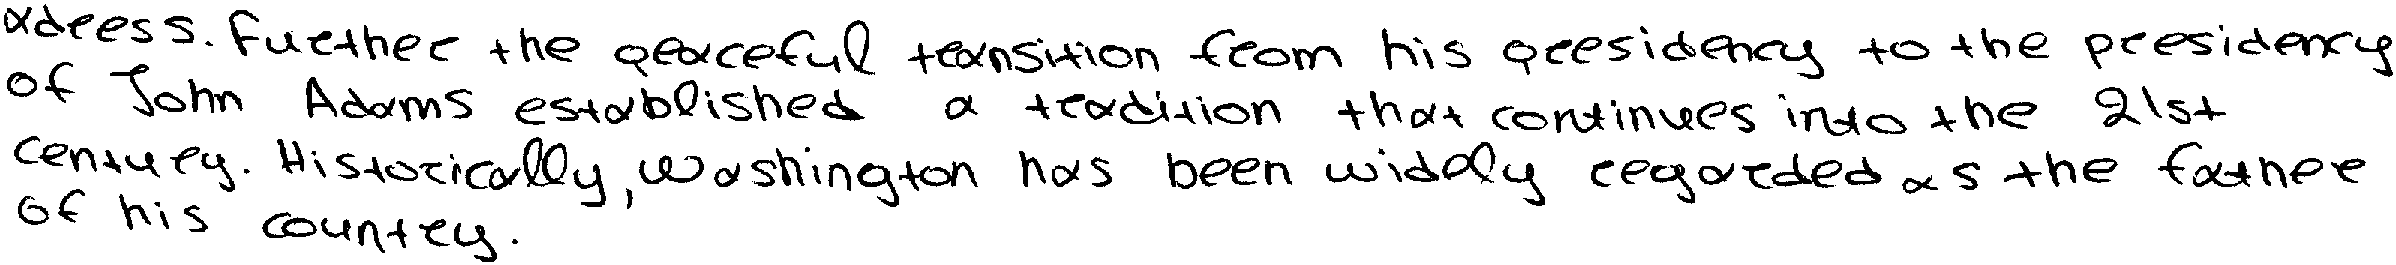 adress. Further the peaceful transition from his presidency to the presidency
of John Adams established a tradition that continues into the 21st
century. Historically, Washington has been widely regarded as the father
of his country.